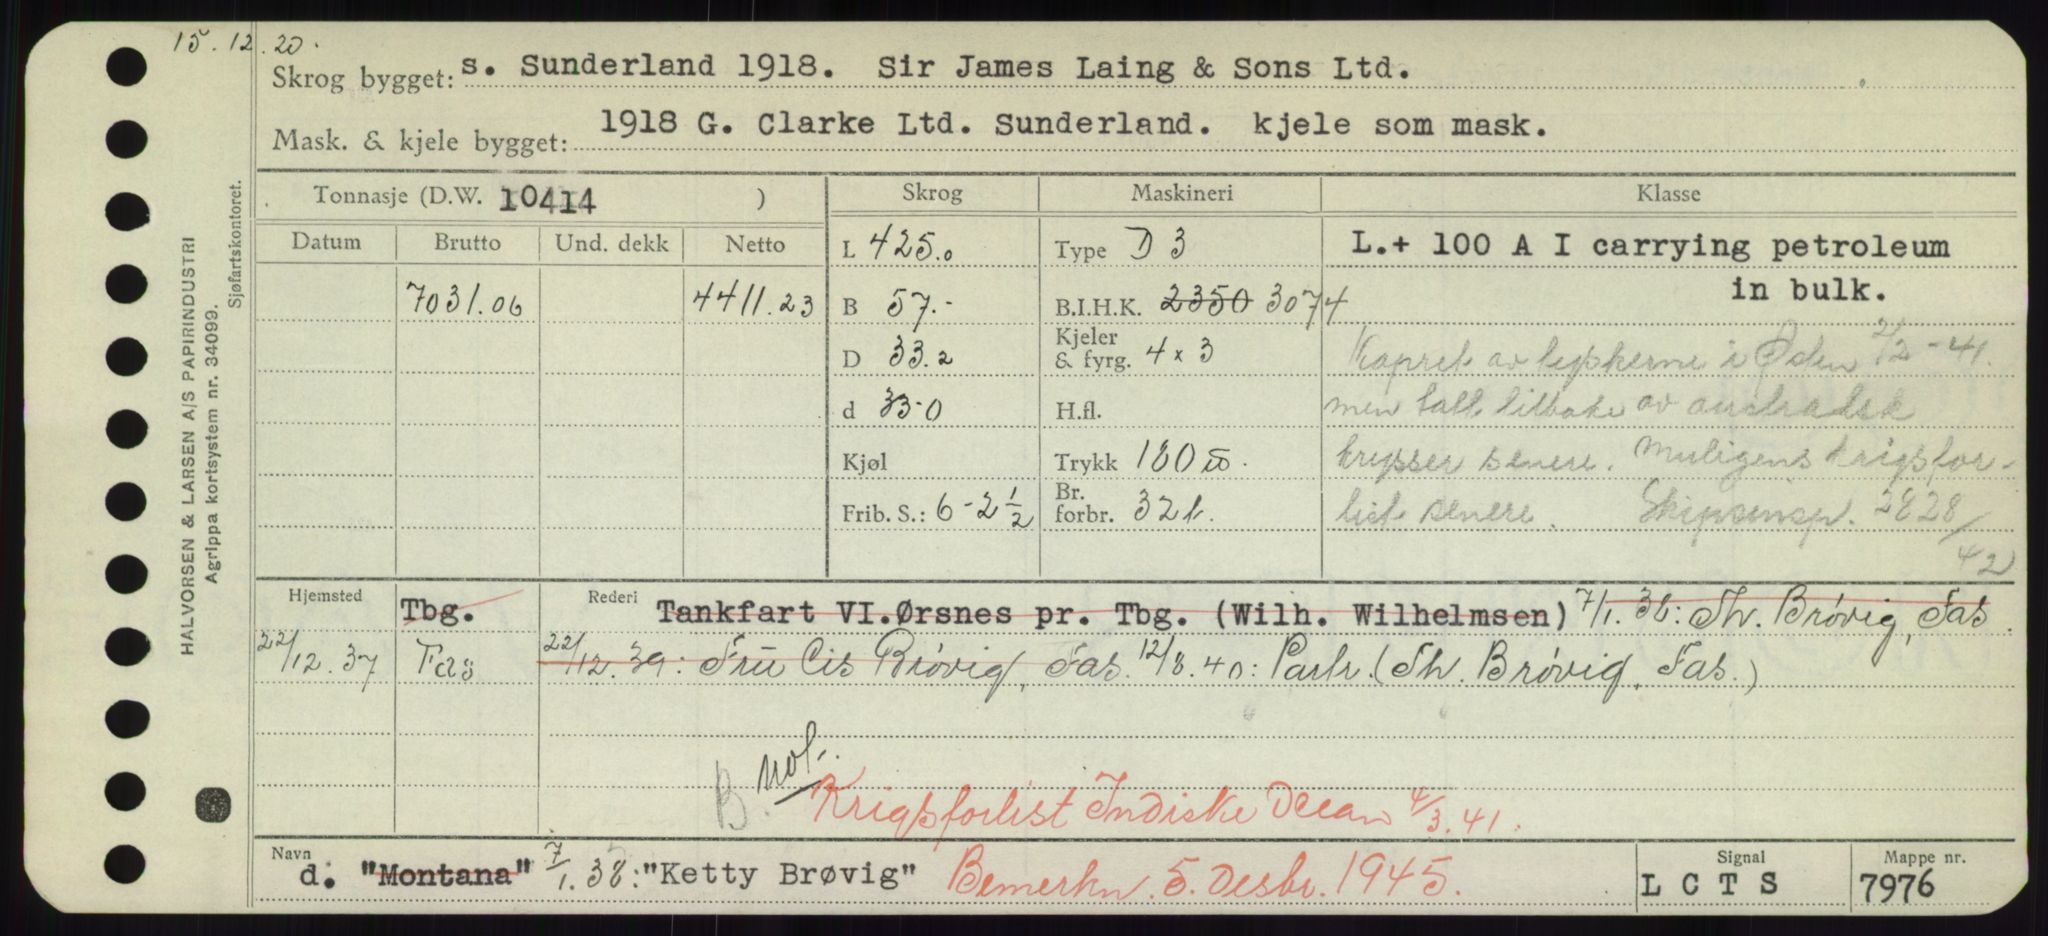 15.12.20.
Skrog bygget: s. Sunderland 1918. Sir James Laing & Sons Ltd.
Mask. & kjele bygget: 1918 G. Clarke Ltd. Sunderland. kjele som mask.
HALVORSEN & LARSEN A/S PAPIRINDUSTRI
Agrippa kortsystem nr. 34099.
Sjøfartskontoret.
Tonnasje (D.W. 10414 ) Skrog Maskineri Klasse
Datum Brutto Und. dekk Netto L 425.0 Type D 3 L.+ 100 A I carrying petroleum
7031.06 4411.23 B 57.- B.I.H.K. 2350 3074 in bulk.
D 33.2 Kjeler & fyrg. 4 x 3 Kapret av tyskerne i Øden 2/2-41.
d 33-0 H.fl. men tatt tilbake av australsk
Kjøl Trykk 180 krysser senere. Muligens krigsfor-
Frib. S.: 6-2 1/2 Br. forbr. 32 t. list senere. Skipsinsp. 2828/42
Hjemsted Tbg. Rederi Tankfart VI.Ørsnes pr. Tbg. (Wilh. Wilhelmsen) 7/1.38: Th. Brøvig, Fas.
22/12.37 Fas 22/12.39: Fru Cis Brøvig, Fas. 12/8.40: Partr. (Th. Brøvig, Fas.)
B. not.
Krigsforlist Indiske Ocean 4/3.41.
Navn d. "Montana" 7/1.38: "Ketty Brøvig" Bemerkn. 5. Desbr. 1945. Signal LCTS Mappe nr. 7976